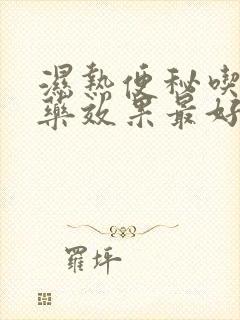 濕熱便秘喫
藥效果最好
羅坪